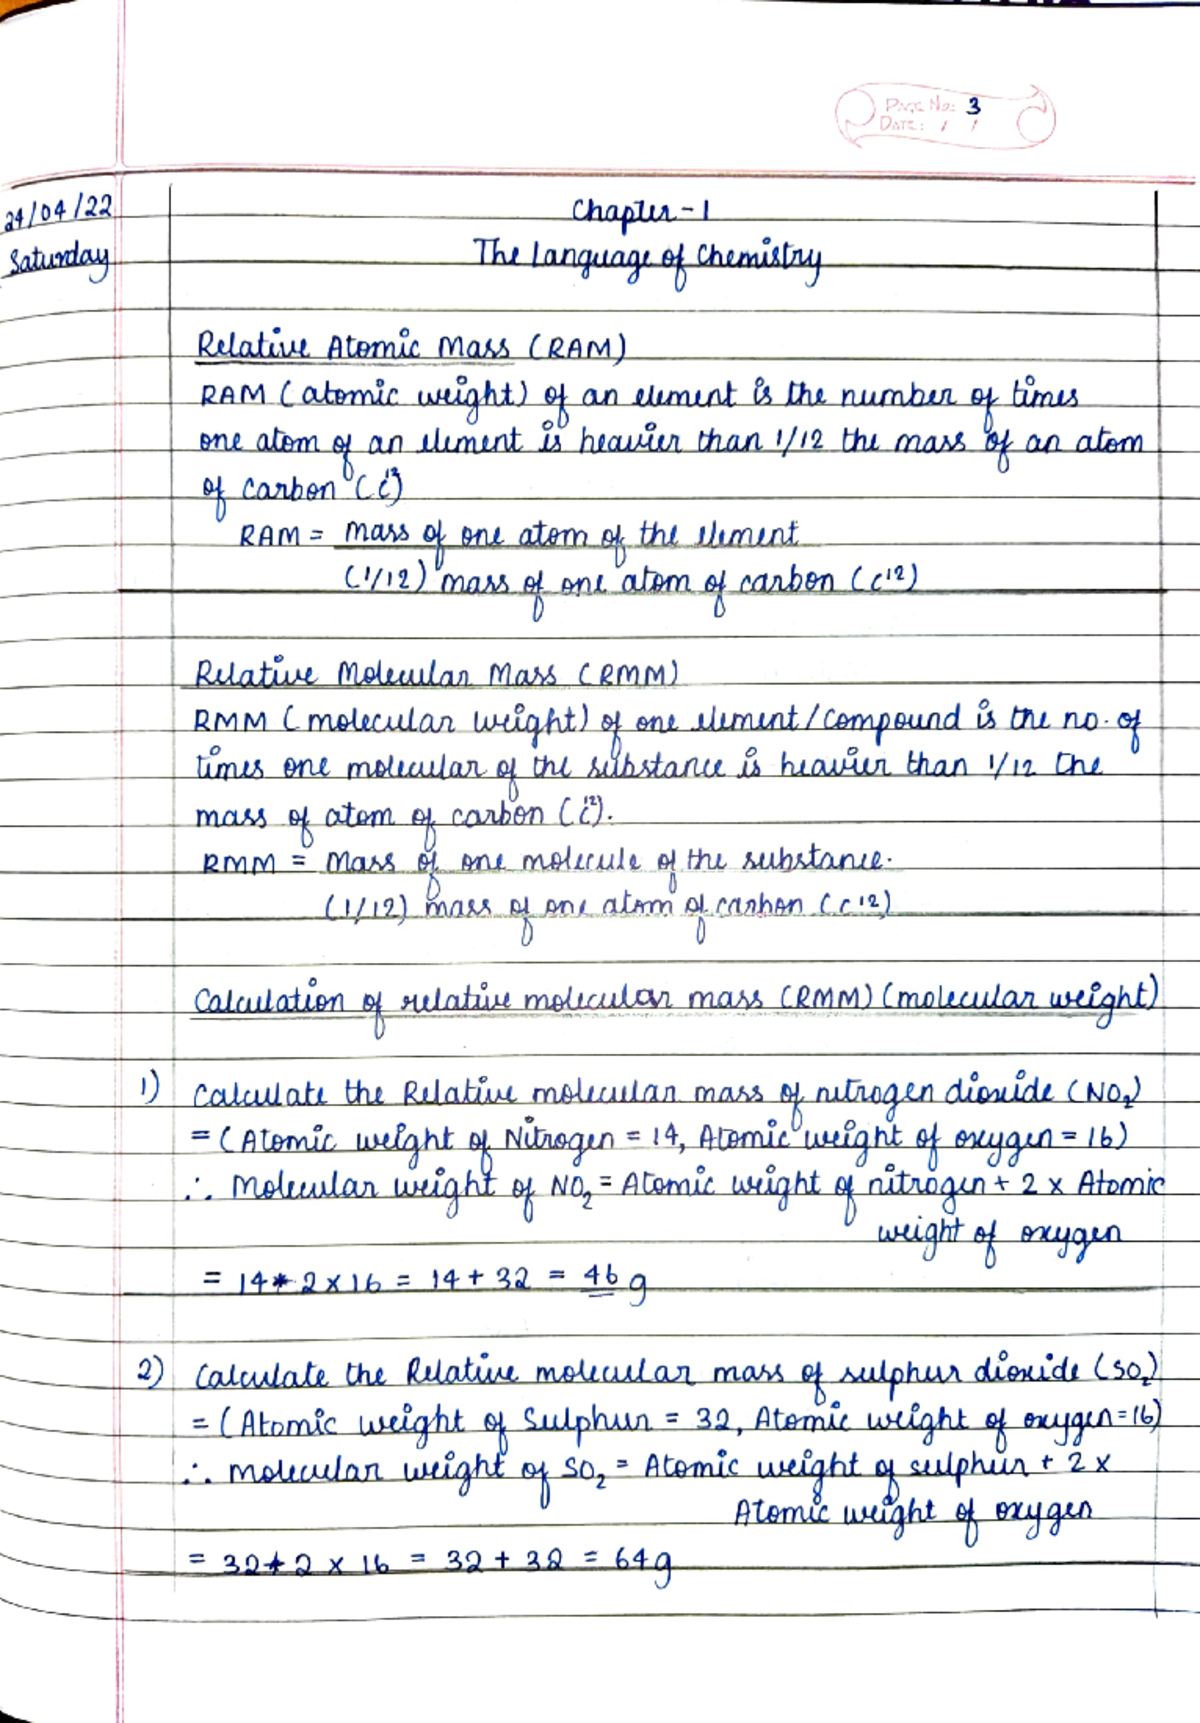 PAGE No: 3
DATE: / /
24/04/22
Saturday
Chapter-1
The Language of Chemistry
Relative Atomic Mass (RAM)
RAM (atomic weight) of an element is the number of times
one atom of an element is heavier than 1/12 the mass of an atom
of carbon
RAM = mass of one atom of the element
(1/12) mass of one atom of carbon (C¹²)
Relative Molecular Mass (RMM)
RMM (molecular weight) of one element/compound is the no. of
times one molecular of the substance is heavier than 1/12 the
mass of atom of carbon (C¹²).
RMM = Mass of one molecule of the substance.
(1/12) mass of one atom of carbon (C¹²)
Calculation of relative molecular mass (RMM) (molecular weight)
1) Calculate the Relative molecular mass of nitrogen dioxide (NO₂)
= (Atomic weight of Nitrogen = 14, Atomic weight of oxygen = 16)
∴ Molecular weight of NO₂ = Atomic weight of nitrogen + 2 x Atomic
weight of oxygen
= 14 + 2 x 16 = 14 + 32 = 46 g
2) Calculate the Relative molecular mass of sulphur dioxide (SO₂)
= (Atomic weight of Sulphur = 32, Atomic weight of oxygen = 16)
∴ molecular weight of SO₂ = Atomic weight of sulphur + 2 x
Atomic weight of oxygen
= 32 + 2 x 16 = 32 + 32 = 64g